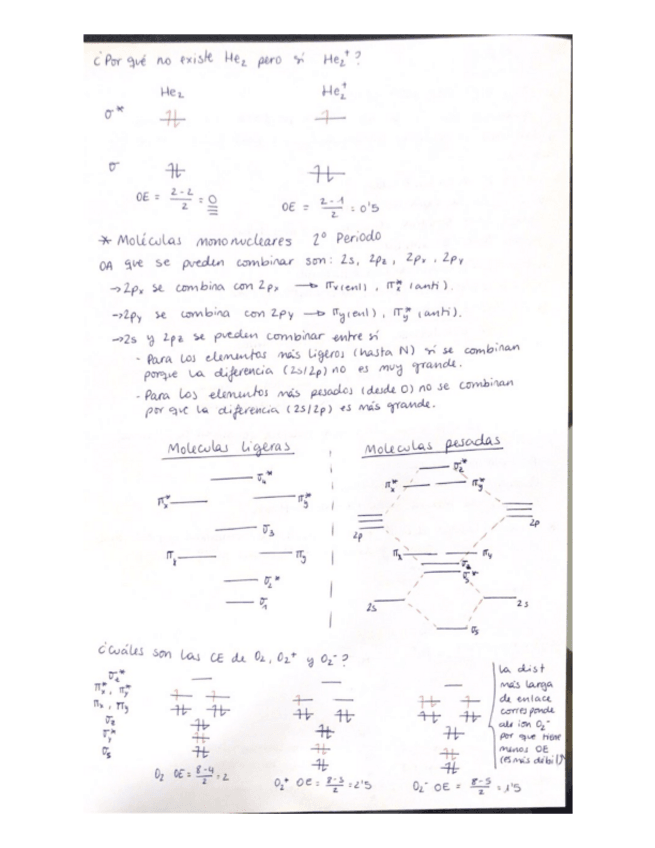 ¿Por qué no existe He₂ pero sí He₂⁺?
He₂ He₂⁺
σ*
σ
OE = 2-2/2 = 0 OE = 2-1/2 = 0'5
* Moléculas mononucleares 2º Periodo
OA que se pueden combinar son: 2s, 2pz, 2px, 2py
→2px se combina con 2px → πx(enl), πx* (anti).
→2py se combina con 2py → πy(enl), πy* (anti).
→2s y 2pz se pueden combinar entre sí
- Para los elementos más ligeros (hasta N) sí se combinan
porque la diferencia (2s/2p) no es muy grande.
- Para los elementos más pesados (desde O) no se combinan
por que la diferencia (2s/2p) es más grande.
Moléculas ligeras Moléculas pesadas
σ₄* σz*
πx* πy* πx* πy*
σ₃ 2p 2p
πx πy πx πy
σ₂* σz
σs*
σ₁ 2s 2s
σs
¿Cuáles son las CE de O₂, O₂⁺ y O₂⁻?
σz*
πx*, πy*
πx, πy
σz
σs
la dist
más larga
de enlace
corresponde
al ion O₂⁻
por que tiene
menos OE
(es más débil)
O₂ OE = 8-4/2 = 2 O₂⁺ OE = 8-3/2 = 2'5 O₂⁻ OE = 8-5/2 = 1'5